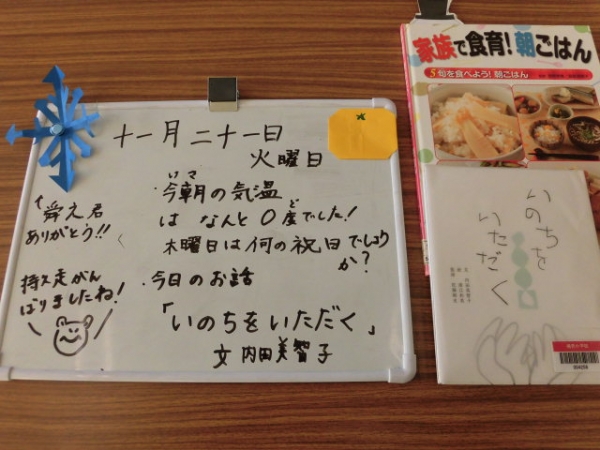 十一月二十一日
火曜日
・今朝の気温
いま
は なんと0度でした!
ど
木曜日は何の祝日でしょう
か?
・今日のお話
「いのちをいただく」
文 内田美智子
舜え君
ありがとう!!
持久走がん
ばりましたね!
家族で食育!朝ごはん
5 旬を食べよう!朝ごはん
いのちを
いただく